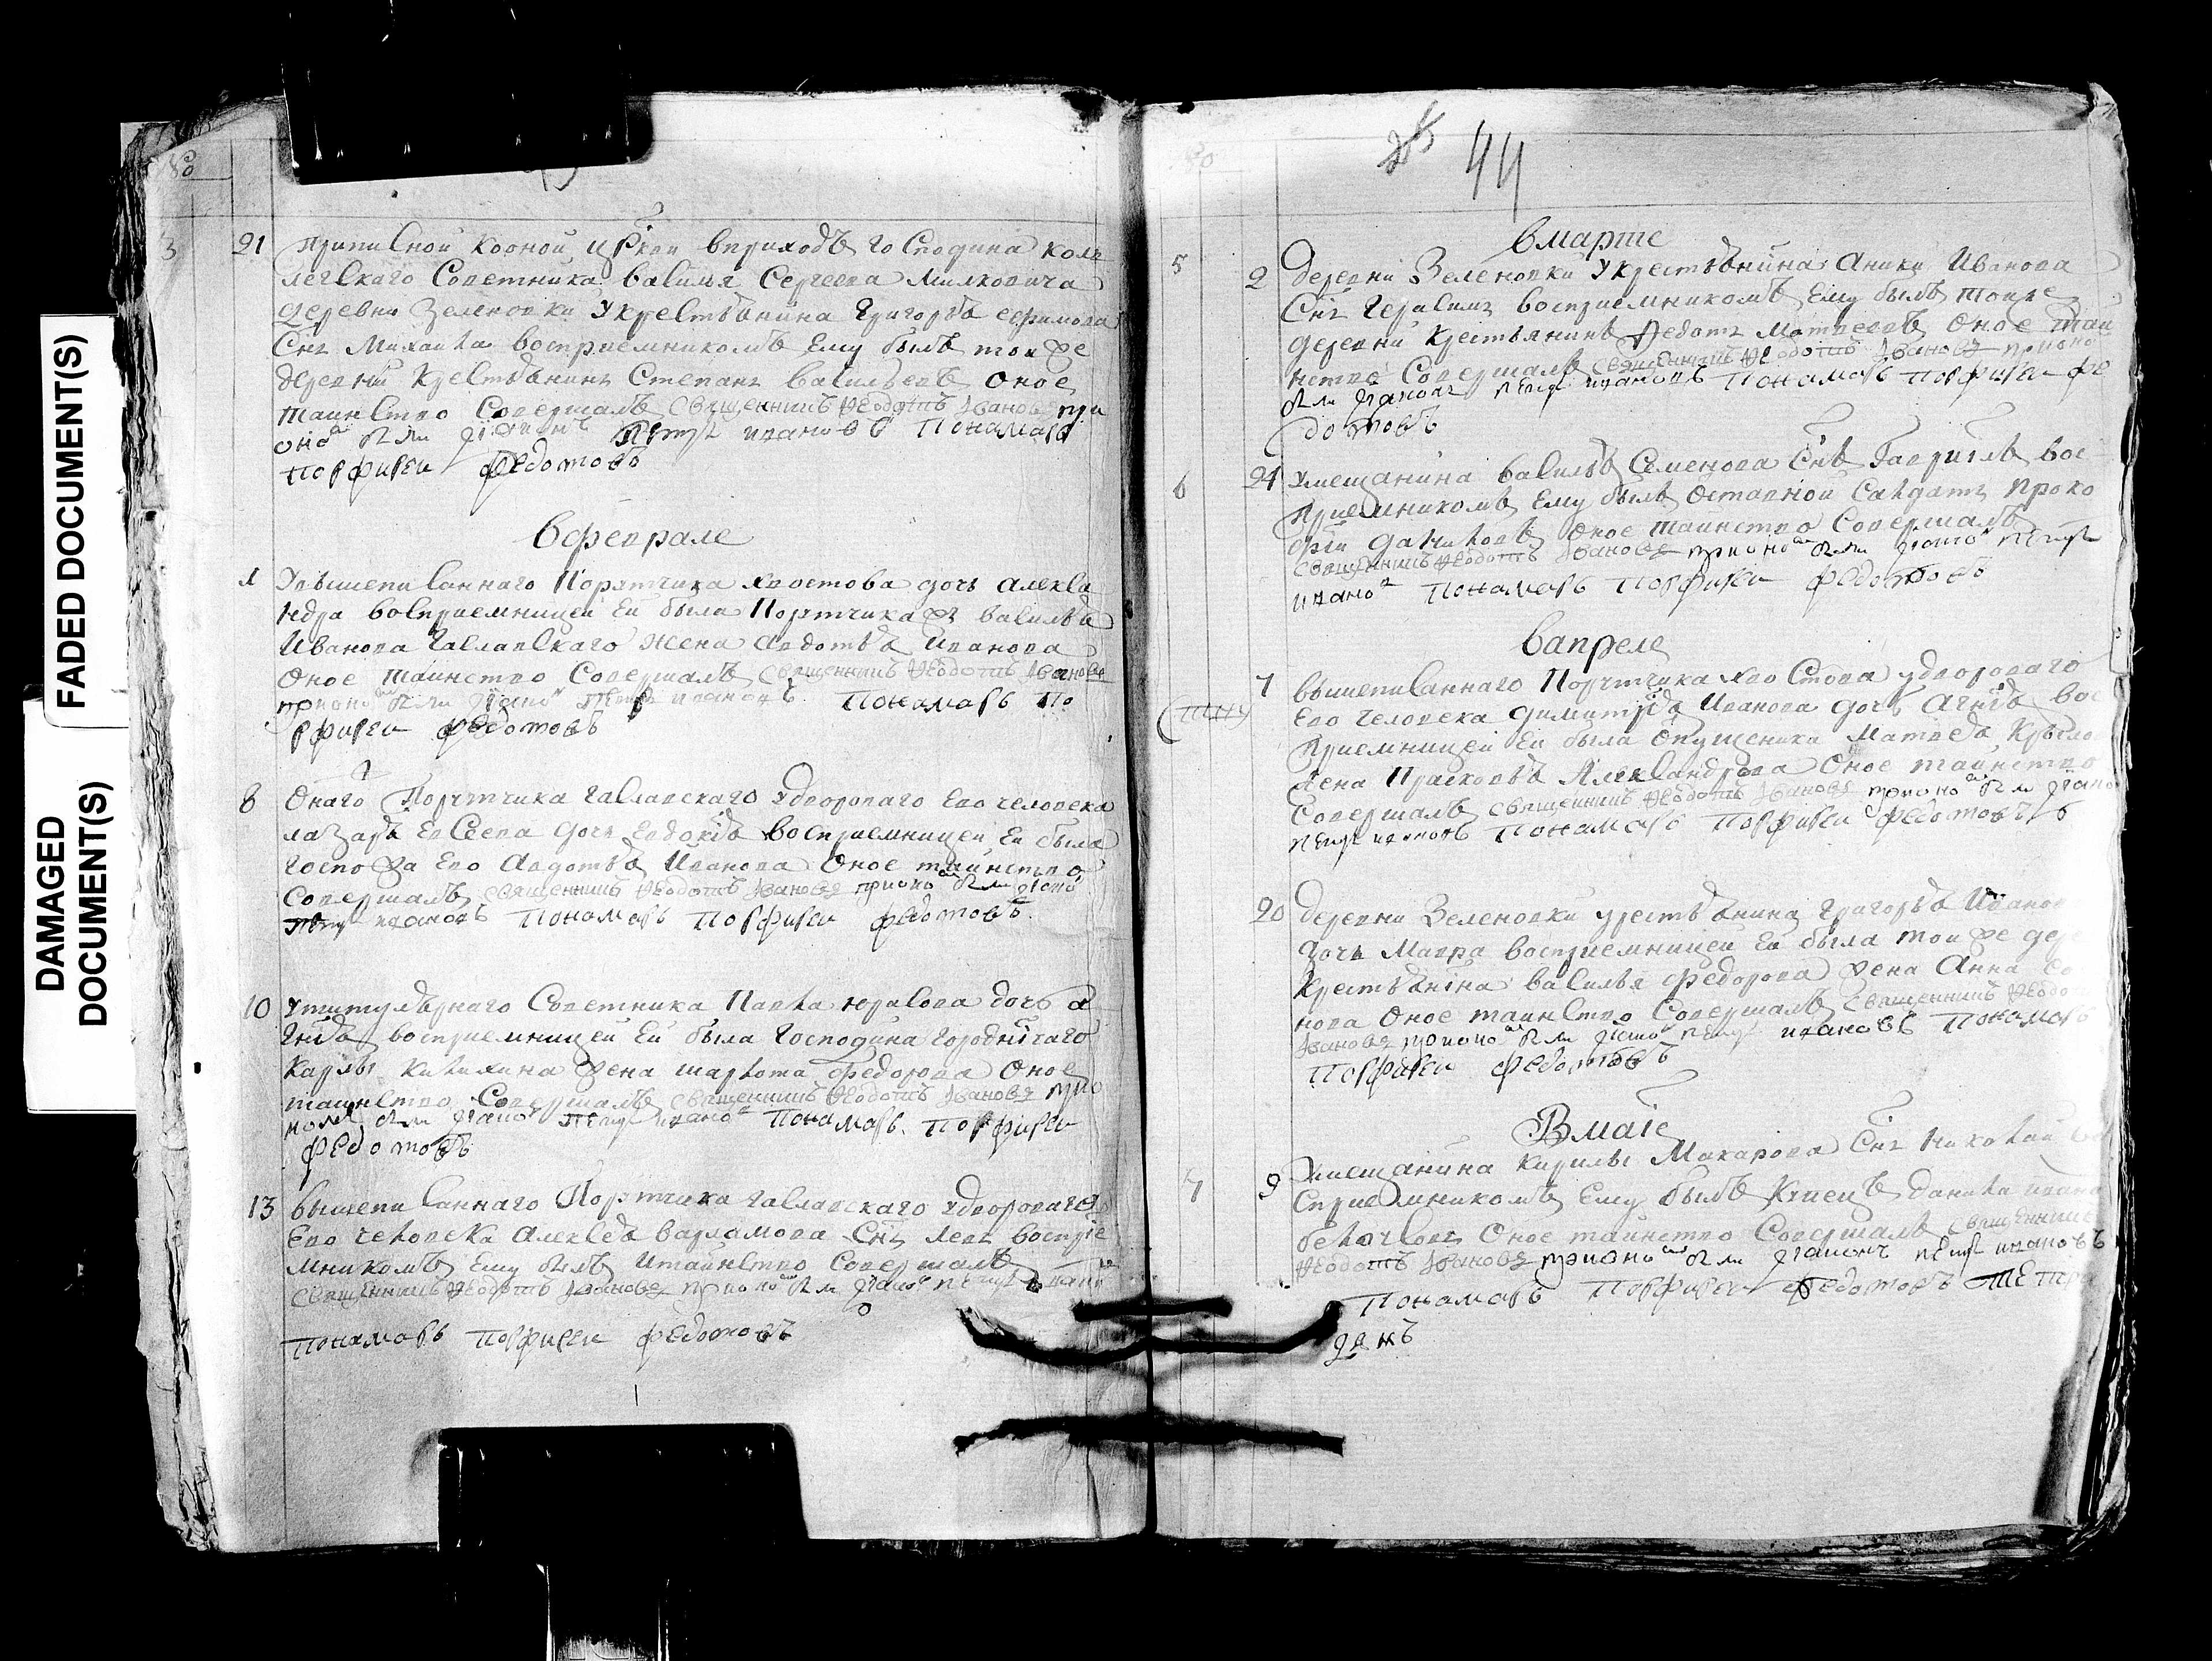 FADED DOCUMENT(S)
DAMAGED
DOCUMENT(S)
3 21 приписной к оной цркви вприходѣ Господина кол
легскаго Советника василья Сергеева Милковича
деревни Зеленовки Укрестьянина Григорья ефимова
Снъ Михаила восприемникомъ Ему былъ тои же
деревни Крестьянинъ Степанъ васильевъ оное
таинство совершалъ священникъ Феодотъ Iвановъ при
оно были дьяконъ Петръ ивановъ Пономарь
Порфирей Федотовъ
вфеврале
1 Увышеписаннаго Порутчика Хвостова дочь алекса
ндра восприемницей Ей была Порутчика жъ василья
Иванова жена Авдотья Иванова
Оное таинство Совершалъ священникъ Феодотъ Iвановъ
прионо были дьяконъ Петръ ивановъ Пономарь По
рфирей Федотовъ
8 Онаго Порутчика удворового Ево человека
лазаря Евсеева дочь Евдокія восприемницей Ей была
госпожа Ево Авдотья Иванова Оное таинство
Совершалъ священникъ Феодотъ Iвановъ прионо были дьяконъ
Петръ ивановъ Пономарь Порфирей Федотовъ
10 Утитулярнаго Советника Павла юрасова дочь а
гнія восприемницей Ей была Господина городничаго
Карлы жена шарлота федорова Оное
таинство Совершалъ священникъ Феодотъ Iвановъ при
были дьяконъ Петръ ивано Пономарь Порфирей
Федотовъ
13 вышеписаннаго Порутчика удворового
Ево человека Алексея варламова Снъ Левъ воспрiе
мникомъ Ему былъ Итаинство Совершалъ
священникъ Феодотъ Iвановъ прионо были дьяконъ Петръ
Пономарь Порфирей Федотовъ
44
вмарте
5 2 деревни Зеленовки Укрестьянина Аники Иванова
Снъ Герасимъ восприемникомъ Ему былъ тоиже
деревни Крестьянинъ Федотъ Матвеевъ Оное таи
нство Совершалъ священникъ Феодотъ Iвановъ прионо
были дьяконъ Петръ ивановъ Пономарь Порфирей Фе
дотовъ
6 21 Умещанина василья Семенова Снъ Гавриилъ вос
приемникомъ Ему былъ Отставной Салдатъ Проко
фей даниловъ Оное таинство Совершалъ
священникъ Феодотъ Iвановъ прионо были дьяконъ Петръ
ивано Пономарь Порфирей Федотовъ
вапреле
7 вышеписаннаго Порутчика хвостова удворового
Ево человека димитрія Иванова дочь Агнія вос
приемницей Ей была Матвея
жена Прасковья Александрова Оное таинство
Совершалъ священникъ Феодотъ Iвановъ прионо были дьяконъ
Петръ ивановъ Пономарь Порфирей Федотовъ
20 деревни Зеленовки Укрестьянина Григорья Иванов
дочь Мавра восприемницей Ей была тои же дере
Крестьянина василья федорова жена Анна
нова Оное таинство Совершалъ священникъ Феодо
Iвановъ прионо были дьяконъ Петръ ивановъ Пономарь
Порфирей Федотовъ
В маіе
7 9 Умещанина Кирилы Макарова Снъ Николай во
сприемникомъ Ему былъ Купецъ данила
Оное таинство Совершалъ священникъ
Феодотъ Iвановъ прионо были дьяконъ Петръ ивановъ
Пономарь Порфирей Федотовъ